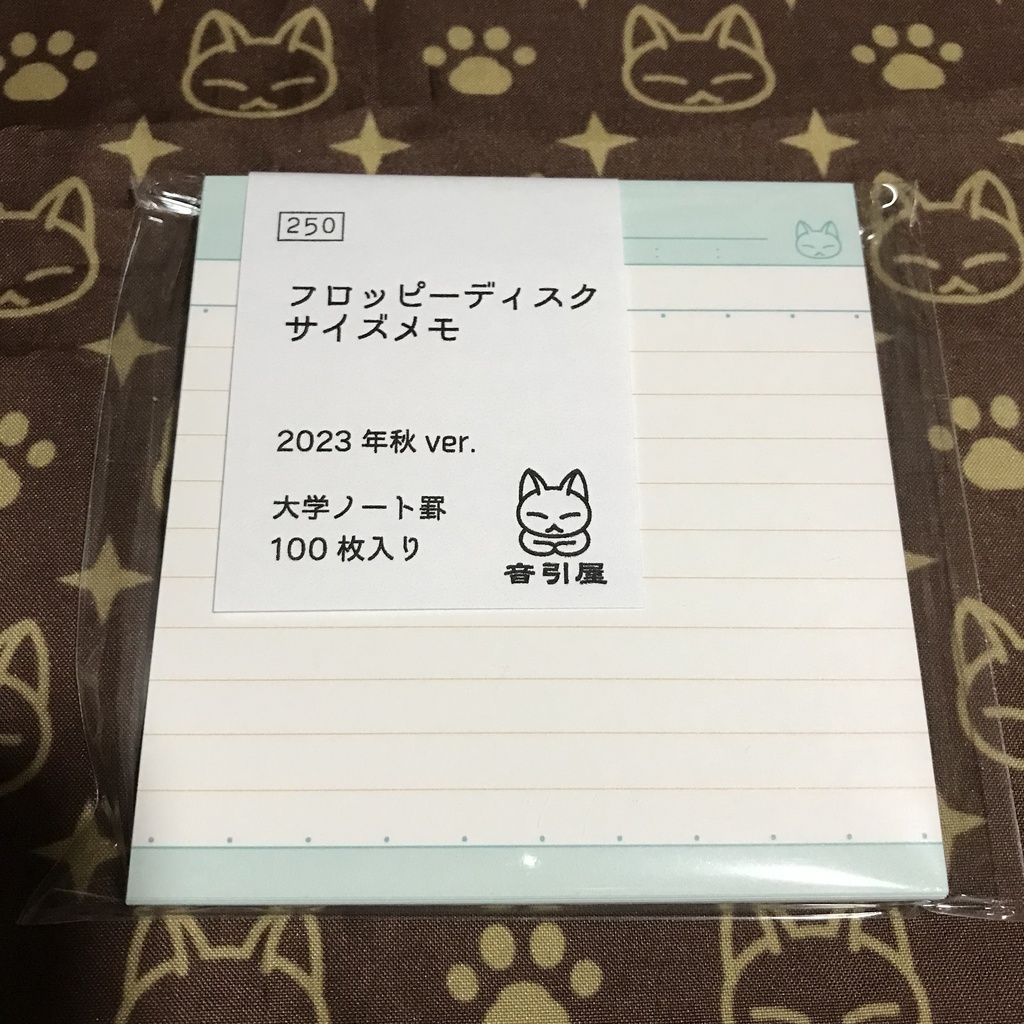 250
フロッピーディスク
サイズメモ
2023 年秋 ver.
大学ノート罫
100 枚入り
音引屋